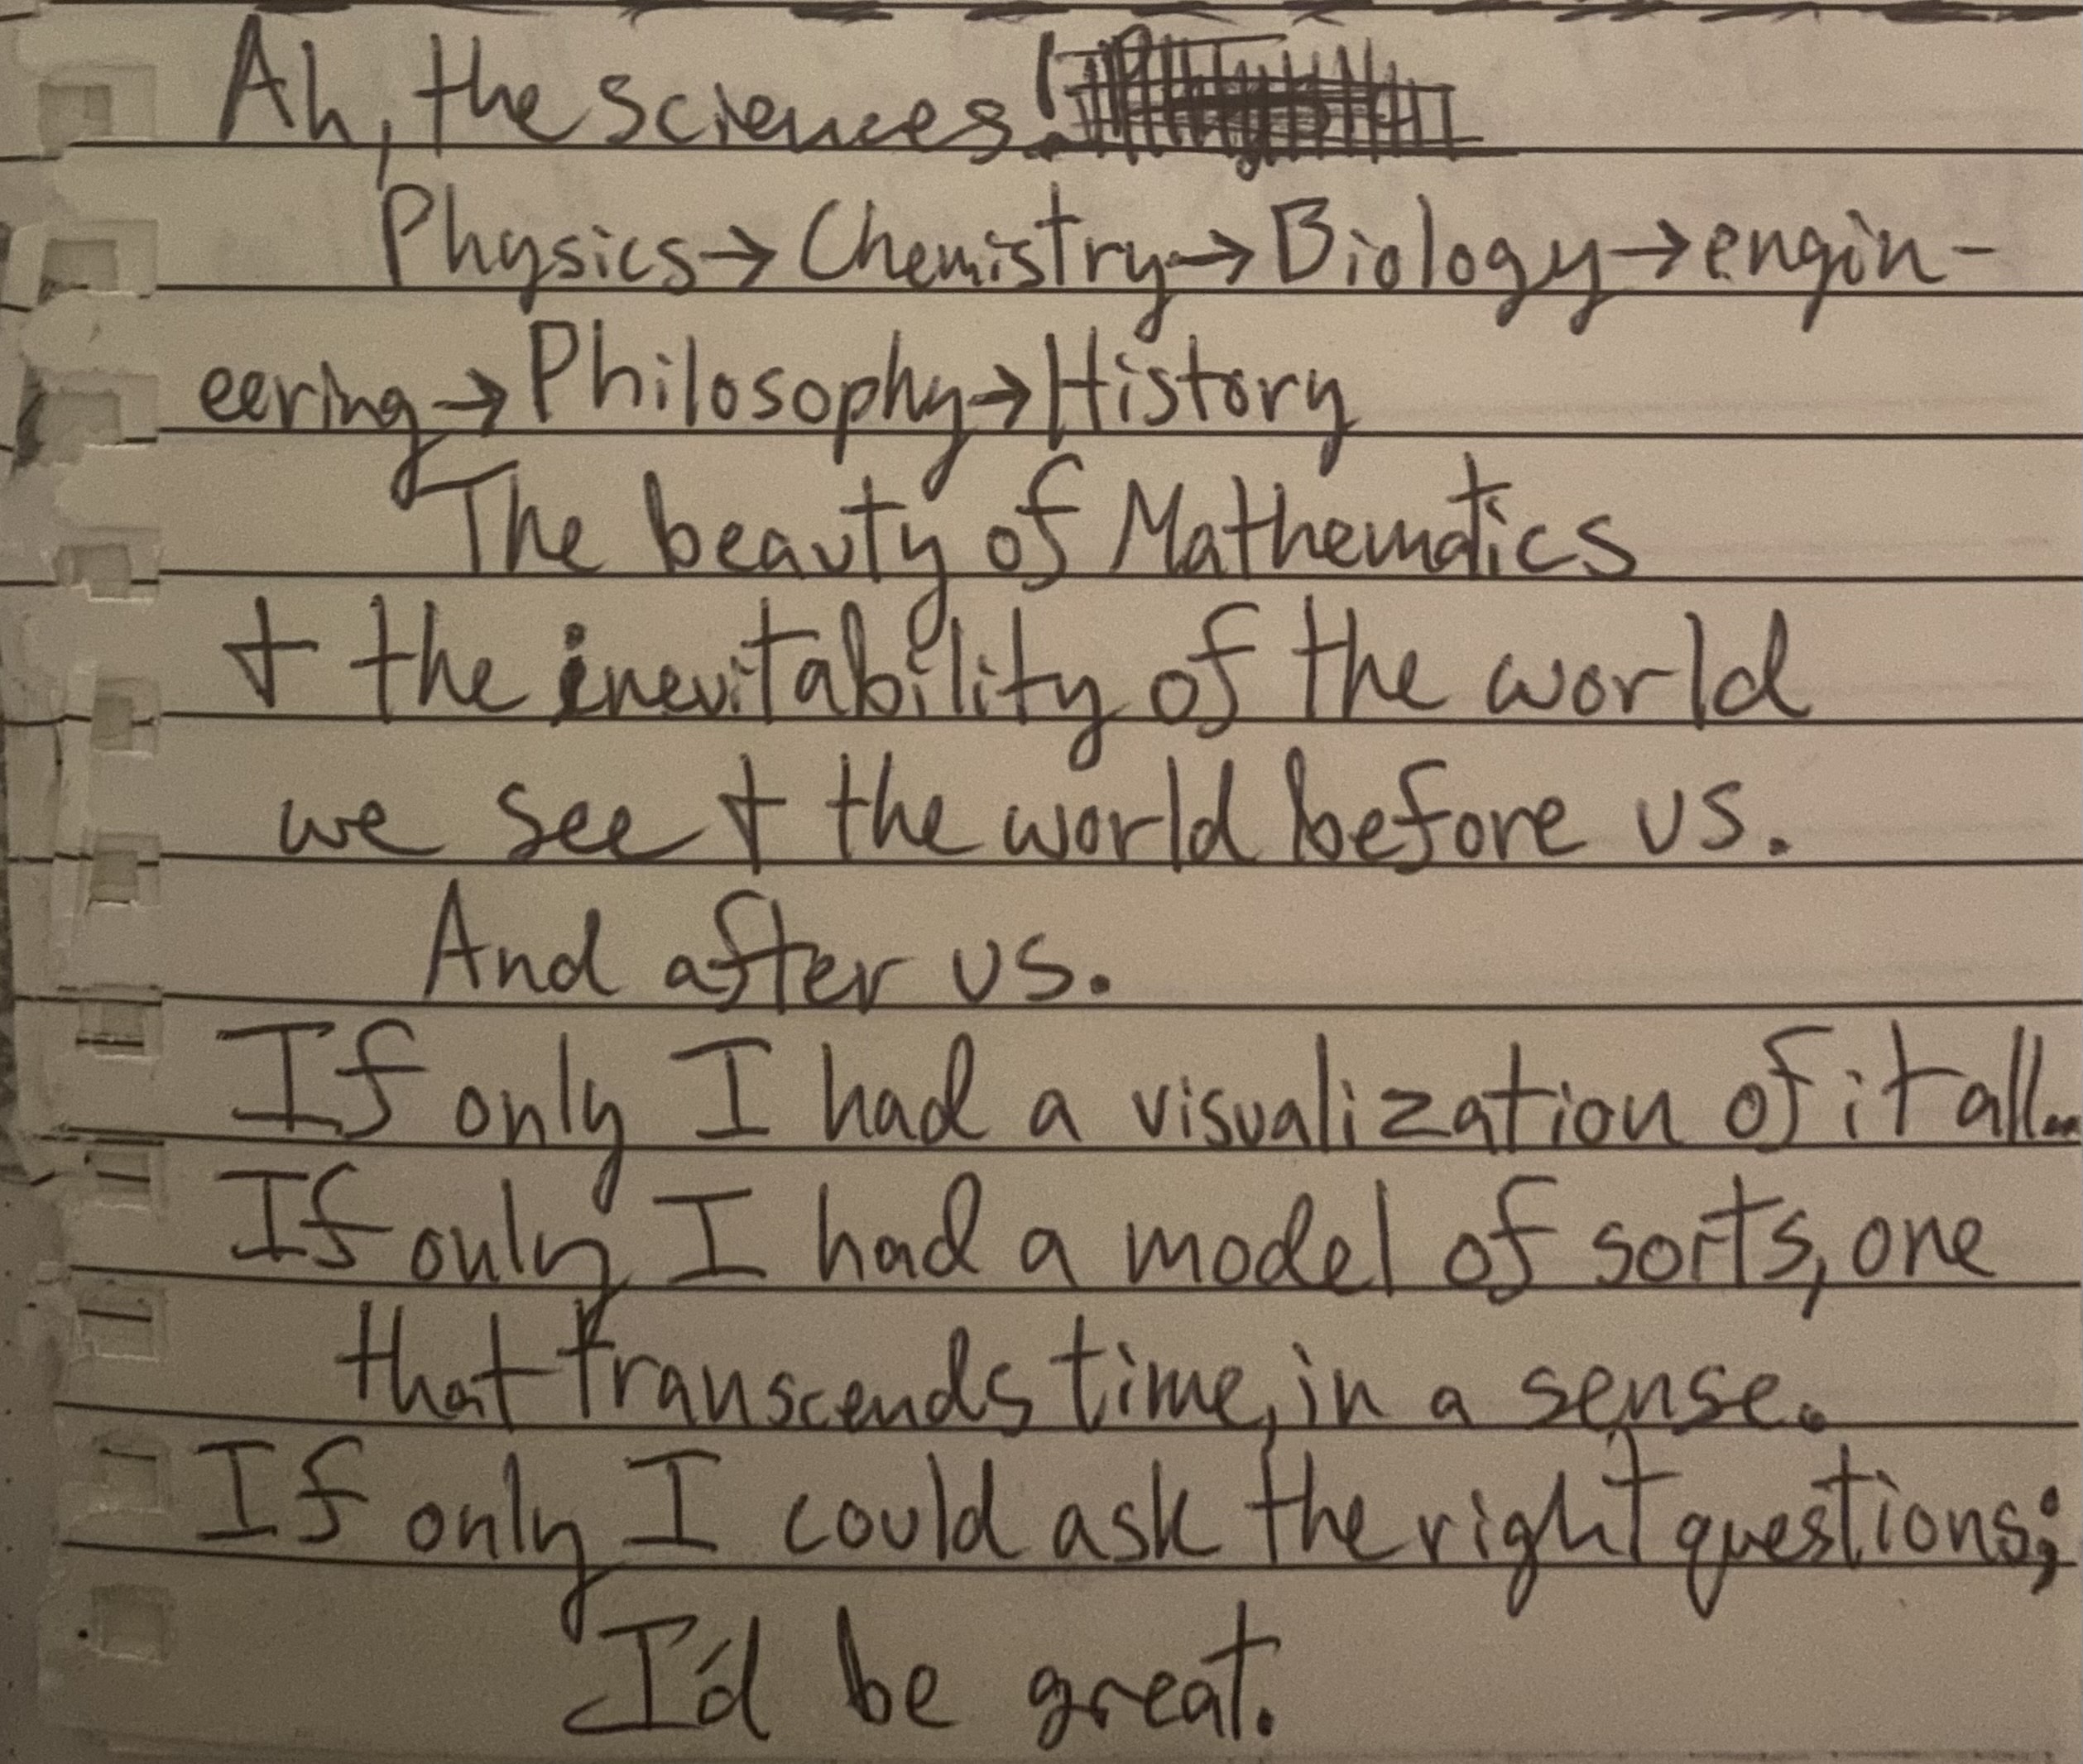 Ah, the sciences!
Physics→Chemistry→Biology→engin-
eering→Philosophy→History
The beauty of Mathematics
+ the inevitability of the world
we see + the world before us.
And after us.
If only I had a visualization of it all...
If only I had a model of sorts, one
that transcends time, in a sense.
If only I could ask the right questions;
I'd be great.